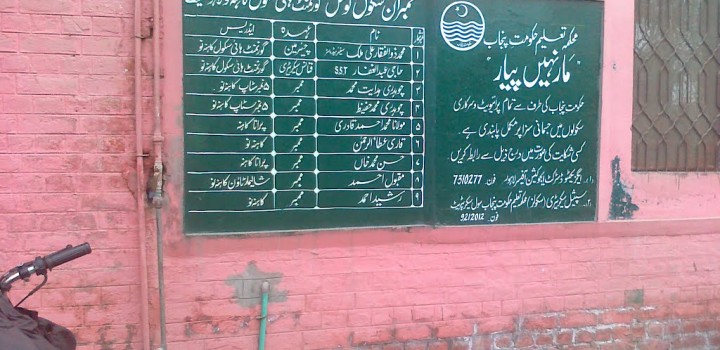 ممبران سکول کونسل گورنمنٹ ہائی سکول
نمبر نام عہدہ ایڈریس
۱ محمد ذوالفقار علی ملک چیئرمین گورنمنٹ ہائی سکول کاہنہ نو
۲ حاجی عبدالغفار S.S.T فنانس سیکریٹری گورنمنٹ ہائی سکول کاہنہ نو
۳ چوہدری ہدایت محمد ممبر ۵ فیرسٹاپ کاہنہ نو
۴ چوہدری محمد حفیظ ممبر ۵ فیرسٹاپ کاہنہ نو
۵ مولانا محمد احمد قادری ممبر پرانا کاہنہ
۶ قاری عطاالرحمٰن ممبر کاہنہ نو
۷ حسن محمد خاں ممبر پرانا کاہنہ
۸ مقبول احمد ممبر شالیمار ٹاؤن کاہنہ نو
۹ رشید احمد ممبر کاہنہ نو
محکمہ تعلیم حکومت پنجاب
"مار نہیں پیار"
حکومت پنجاب کی طرف سے تمام پرائیویٹ و سرکاری
سکولوں میں جسمانی سزا پر مکمل پابندی ہے۔
کسی شکایت کی صورت میں درج ذیل سے رابطہ کریں۔
۱۔ ایگزیکٹو ڈسٹرکٹ ایجوکیشن آفیسر لاہور فون 7310277
۲۔ سپیشل سیکریٹری (سکولز) محکمہ تعلیم حکومت پنجاب سول سیکریٹریٹ
فون 92/2012